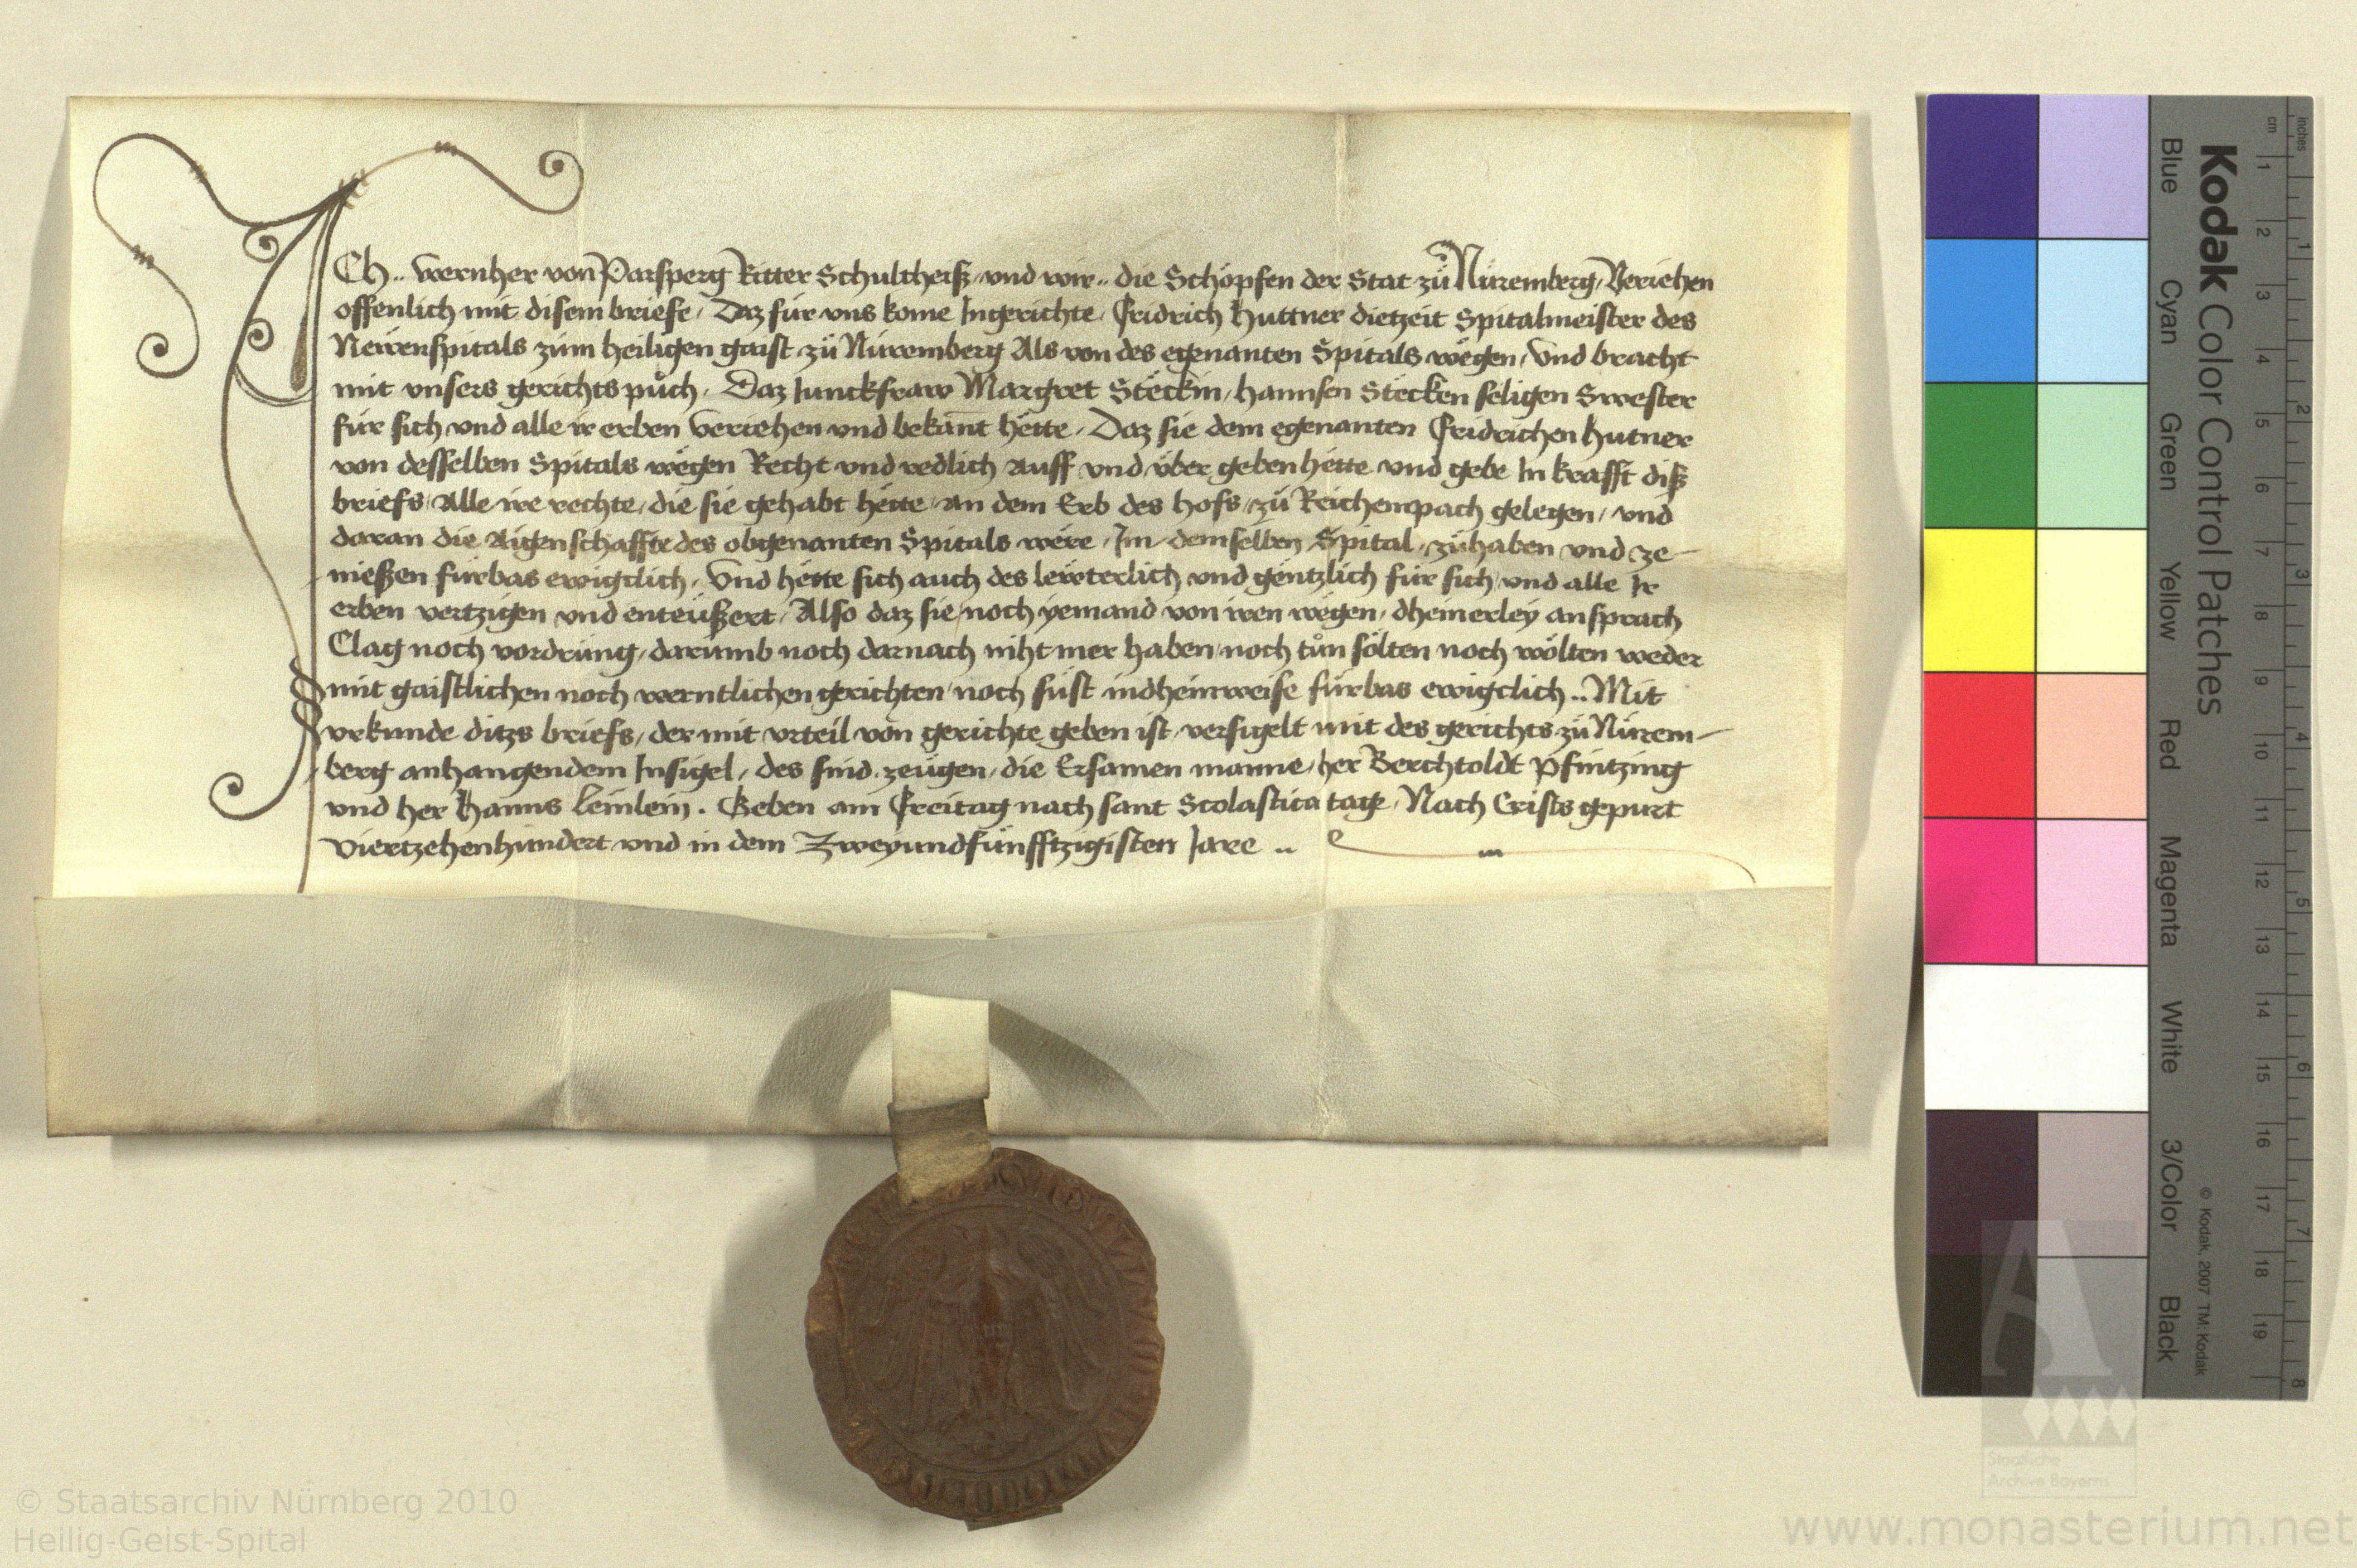 ICh .. Wernher von Parsperg Ritter Schultheiß, und wir .. die Schöpfen der Stat zů Nüremberg, Veriehen
offenlich mit disem briefe, Daz für uns kome Ingerichte, Fridrich Huttner dietzeit Spitalmeister des
Newenspitals zum heiligen gaist zů Nüremberg Als von des egenanten Spitals wegen, Und bracht
mit unsers gerichts půch, Daz Junckfraw Margret Steckin, hannsen Stecken seligen Swester
für sich und alle ir erben veriehen und bekant hette, Daz sie dem egenanten Fridrichen Hutner
von desselben Spitals wegen Recht und redlich auff und über geben hette und gebe In krafft diß
briefs, Alle ire rechte, die sie gehabt hette, an dem Erb des hofs, zů Reichempach gelegen, und
daran die Aigenschaffte des obgenanten Spitals were, Im demselben Spital, zuhaben und ze-
nießen fürbas ewigclich, Und hette sich auch des lewterlich und gentzlich für sich, und alle Ir
erben vertzigen und enteüßert, Also daz sie, noch yemand von iren wegen, dheinerley ansprach
Clag noch vordrüng, darumb noch darnach niht mer haben, noch tůn sölten noch wölten weder
mit gaistlichen noch werntlichen gerichten, noch süst indheinweise fürbas ewigclich .. Mit
urkunde ditzs briefs, der mit urteil von gerichte geben ist, versigelt mit des gerichts zů Nürem-
berg anhangendem Insigel, des sind, zeugen, die Ersamen manne, her Berchtoldt Pfintzing
und her Hanns Leinlein. Geben am Freitag nach sant Scolastica tage, Nach Crists gepurt
Viertzehenhundert und in dem Zweyundfünfftzigisten Jare ..
Kodak Color Control Patches
Blue Cyan Green Yellow Red Magenta White 3/Color Black
© Kodak, 2007 TM: Kodak
cm 1 2 3 4 5 6 7 8 9 10 11 12 13 14 15 16 17 18 19
inches 1 2 3 4 5 6 7 8
Staatliche
Archive Bayerns
© Staatsarchiv Nürnberg 2010
Heilig-Geist-Spital
www.monasterium.net